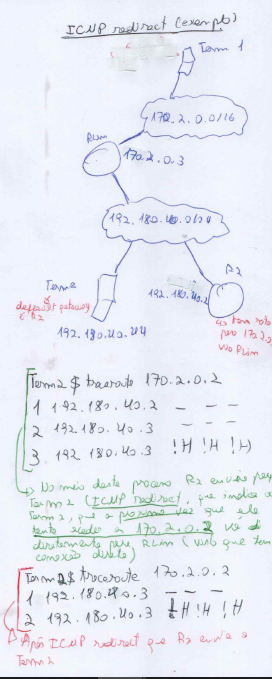 ICMP redirect (exemplo)
Term 1
170.2.0.0/16
RUM
170.2.0.3
192.180.40.0/24
Term2
default gateway
é R2
192.180.40.44
R2
192.180.40.2
170.2.0
Term2 $ traceroute 170.2.0.2
1 192.180.40.2 — — —
2 192.180.40.3 — — —
3. 192.180.40.3 !H !H !H
No meio deste processo R2 envia para
Term2 (ICMP redirect), que indica a
Term2, que a próxima vez que ele
tente aceder a 170.2.0.2 vá
diretamente para (visto que tem
conexão direta)
Term2$ traceroute 170.2.0.2
1 192.180.40.3 — — —
2 192.180.40.3 !H !H !H
Após ICMP redirect que R2 envia a
Term2